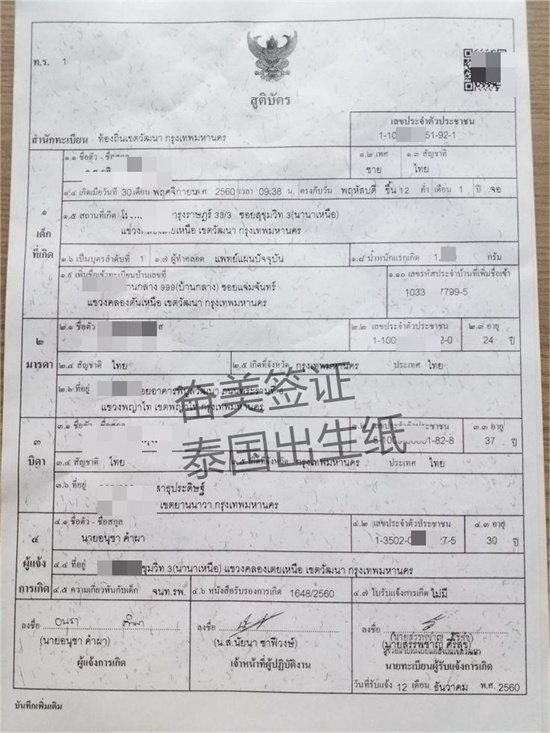 ท.ร. 1
สูติบัตร
สำนักทะเบียน ท้องถิ่นเขตวัฒนา กรุงเทพมหานคร
เลขประจำตัวประชาชน
1-10 51-92-1
๑
เด็ก
ที่เกิด
๑.๑ ชื่อตัว - ชื่อสกุล
๑.๒ เพศ
ชาย
๑.๓ สัญชาติ
ไทย
๑.๔ เกิดเมื่อวันที่ 30 เดือน พฤศจิกายน พ.ศ. 2560 เวลา 09.38 น. ตรงกับวัน พฤหัสบดี ขึ้น 12 ค่ำ เดือน 1 ปี จอ
๑.๕ สถานที่เกิด ารุงราษฎร์ 33/3 ซอยสุขุมวิท 3(นานาเหนือ)
แขวง เตยเหนือ เขตวัฒนา กรุงเทพมหานคร
๑.๖ เป็นบุตรลำดับที่ 1
๑.๗ ผู้ทำคลอด แพทย์แผนปัจจุบัน
๑.๘ น้ำหนักแรกเกิด กรัม
๑.๙ เพิ่มชื่อเข้าทะเบียนบ้านเลขที่
านกลาง 999(บ้านกลาง) ซอยแจ่มจันทร์
แขวงคลองตันเหนือ เขตวัฒนา กรุงเทพมหานคร
๑.๑๐ เลขรหัสประจำบ้านที่เพิ่มชื่อเข้า
1033 7799-5
๒
มารดา
๒.๑ ชื่อตัว
๒.๒ เลขประจำตัวประชาชน
1-100 2-0
๒.๓ อายุ
24 ปี
๒.๔ สัญชาติ ไทย
๒.๕ เกิดที่จังหวัด กรุงเทพมหานคร ประเทศ ไทย
๒.๖ ที่อยู่
แขวงพญาไท กรุงเทพมหานคร
๓
บิดา
๓.๑
๓.๒ เลขประจำตัวประชาชน
1-82-8
๓.๓ อายุ
37 ปี
๓.๔ สัญชาติ ไทย
กรุงเทพมหานคร ประเทศ ไทย
๓.๖ ที่อยู่
สาธุประดิษฐ์
เขตยานนาวา กรุงเทพมหานคร
奋美签证
泰国出生纸
๔
ผู้แจ้ง
การเกิด
๔.๑ ชื่อตัว - ชื่อสกุล
นายอนุชา คำผา
๔.๒ เลขประจำตัวประชาชน
1-3502-0 27-5
๔.๓ อายุ
30 ปี
๔.๔ ที่อยู่ ขุมวิท 3(นานาเหนือ) แขวงคลองเตยเหนือ เขตวัฒนา กรุงเทพมหานคร
๔.๕ ความเกี่ยวพันกับเด็ก จนท.รพ.
๔.๖ หนังสือรับรองการเกิด 1648/2560
๔.๗ ใบรับแจ้งการเกิด ไม่มี
ลงชื่อ
(นายอนุชา คำผา)
ผู้แจ้งการเกิด
ลงชื่อ
(น.ส.นัยนา ชาฟีวงษ์)
เจ้าหน้าที่ผู้ปฏิบัติงาน
ลงชื่อ
นายทะเบียนผู้รับแจ้งการเกิด
วันที่รับแจ้ง 12 เดือน ธันวาคม พ.ศ. 2560
บันทึกเพิ่มเติม